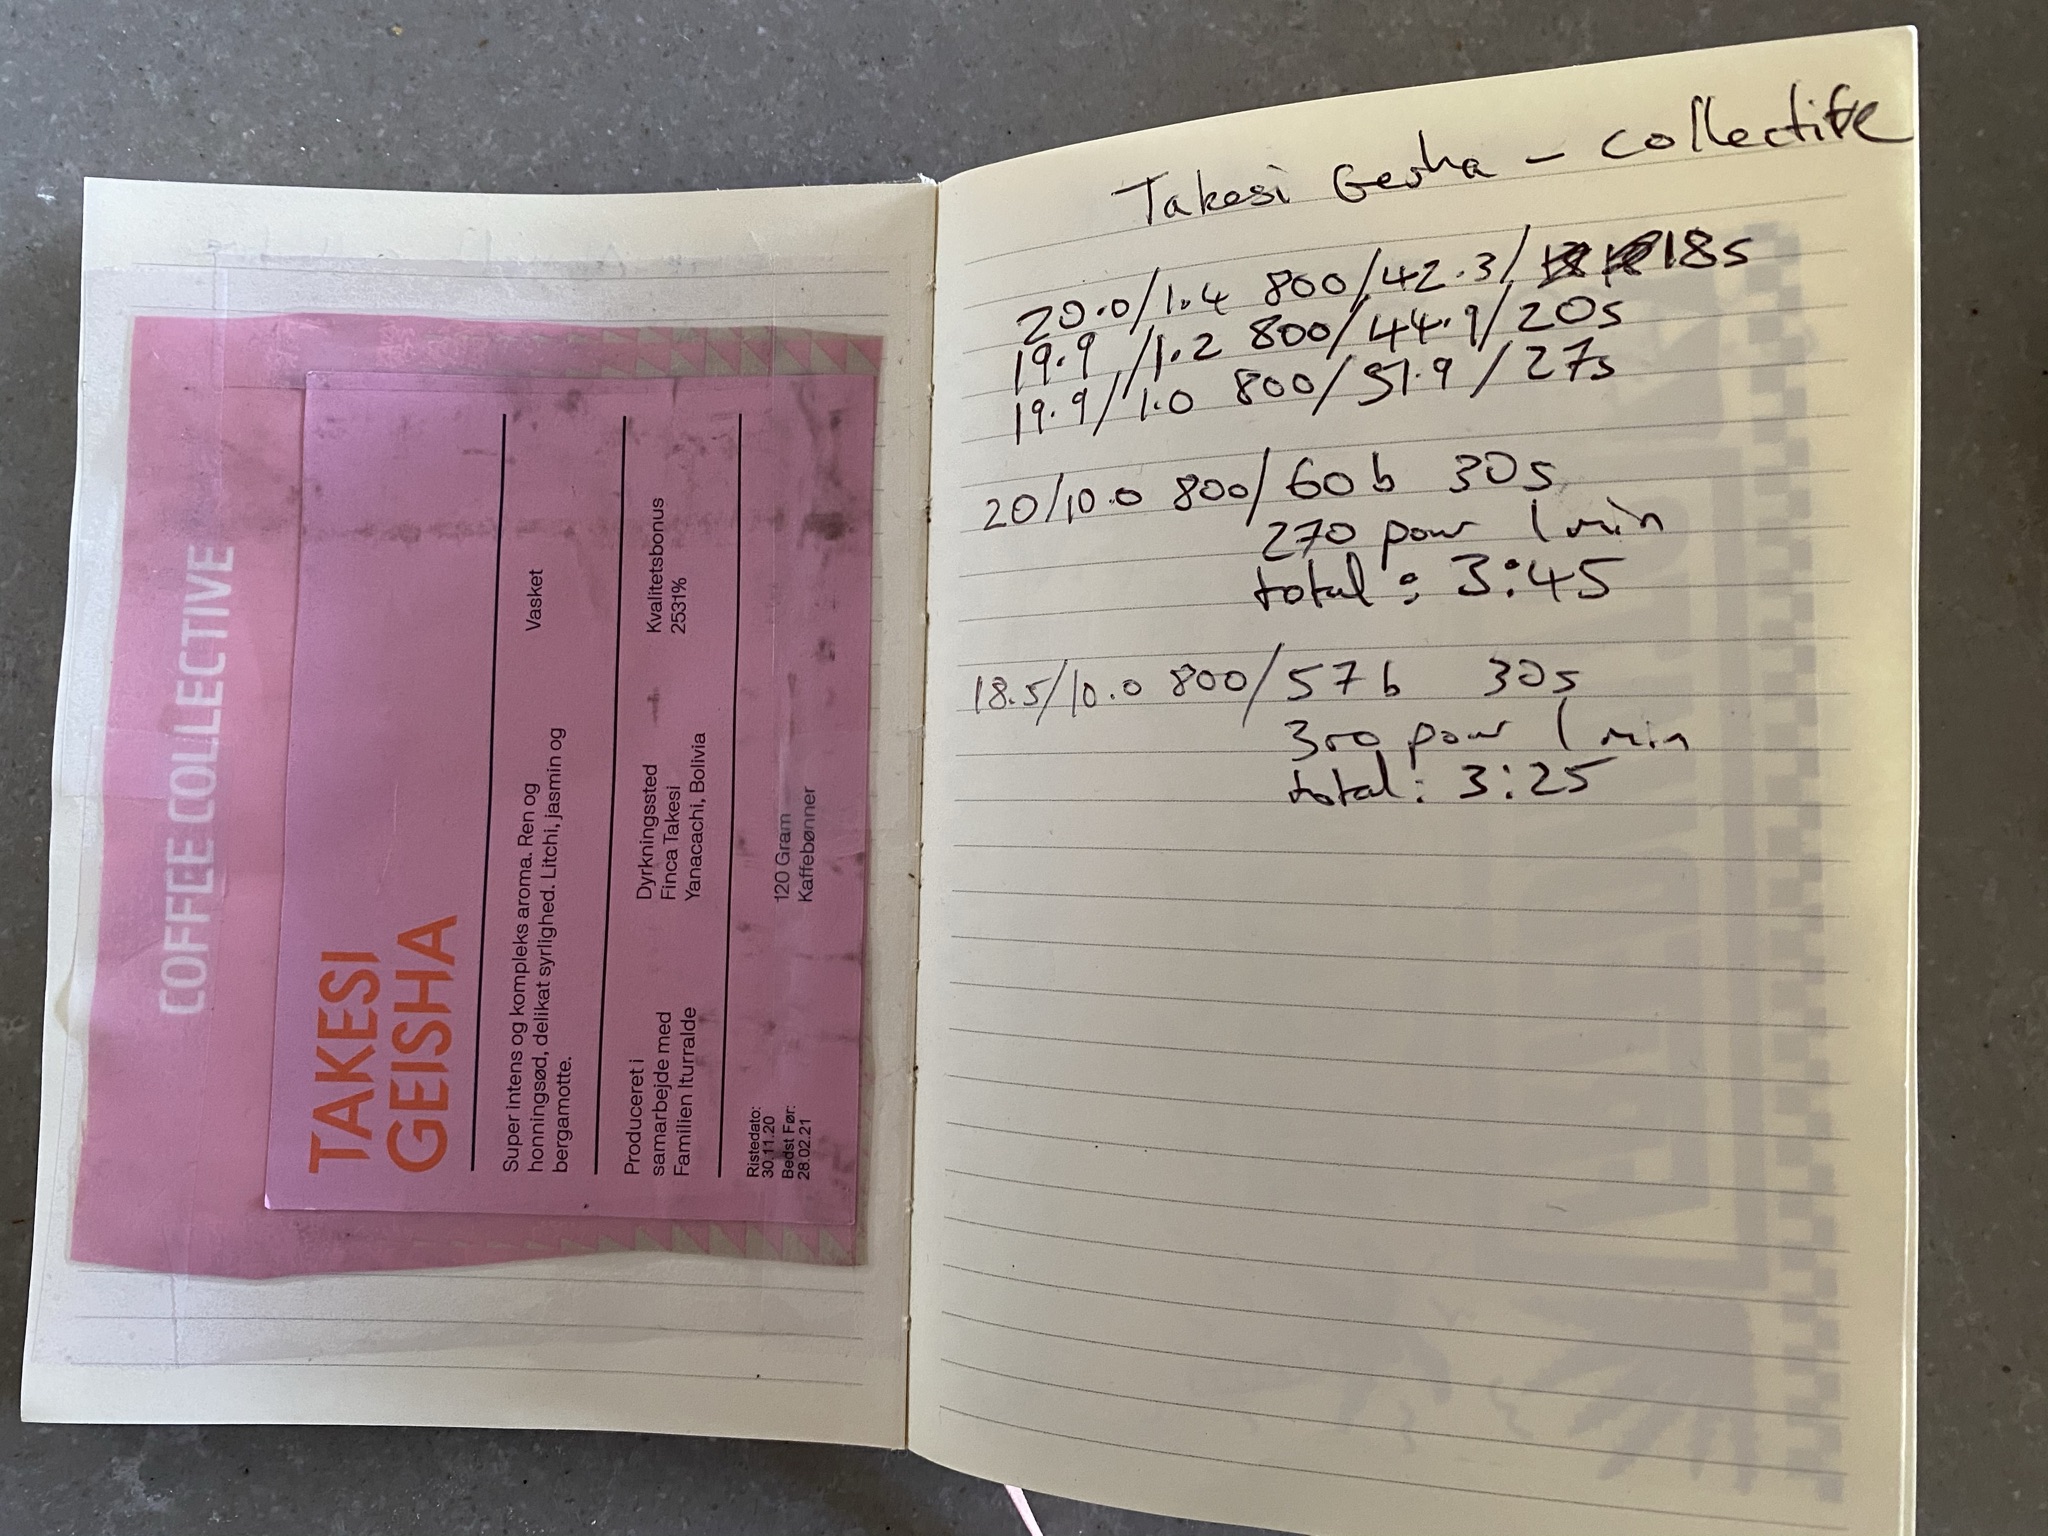 COFFEE COLLECTIVE
TAKESI
GEISHA
Super intens og kompleks aroma. Ren og
honningsød, delikat syrlighed. Litchi, jasmin og
bergamotte.
Vasket
Produceret i
samarbejde med
Familien Iturralde
Dyrkningssted
Finca Takesi
Yanacachi, Bolivia
Kvalitetsbonus
2531%
Ristedato:
30.11.20
Bedst Før:
28.02.21
120 Gram
Kaffebønner
Takesi Gesha - Collective
20.0/1.4 800/42.3/ 18s
19.9/1.2 800/44.9/20s
19.9/1.0 800/51.9/27s
20/10.0 800/60b 30s
270 pour 1 min
total: 3:45
18.5/10.0 800/57b 30s
300 pour 1 min
total: 3:25